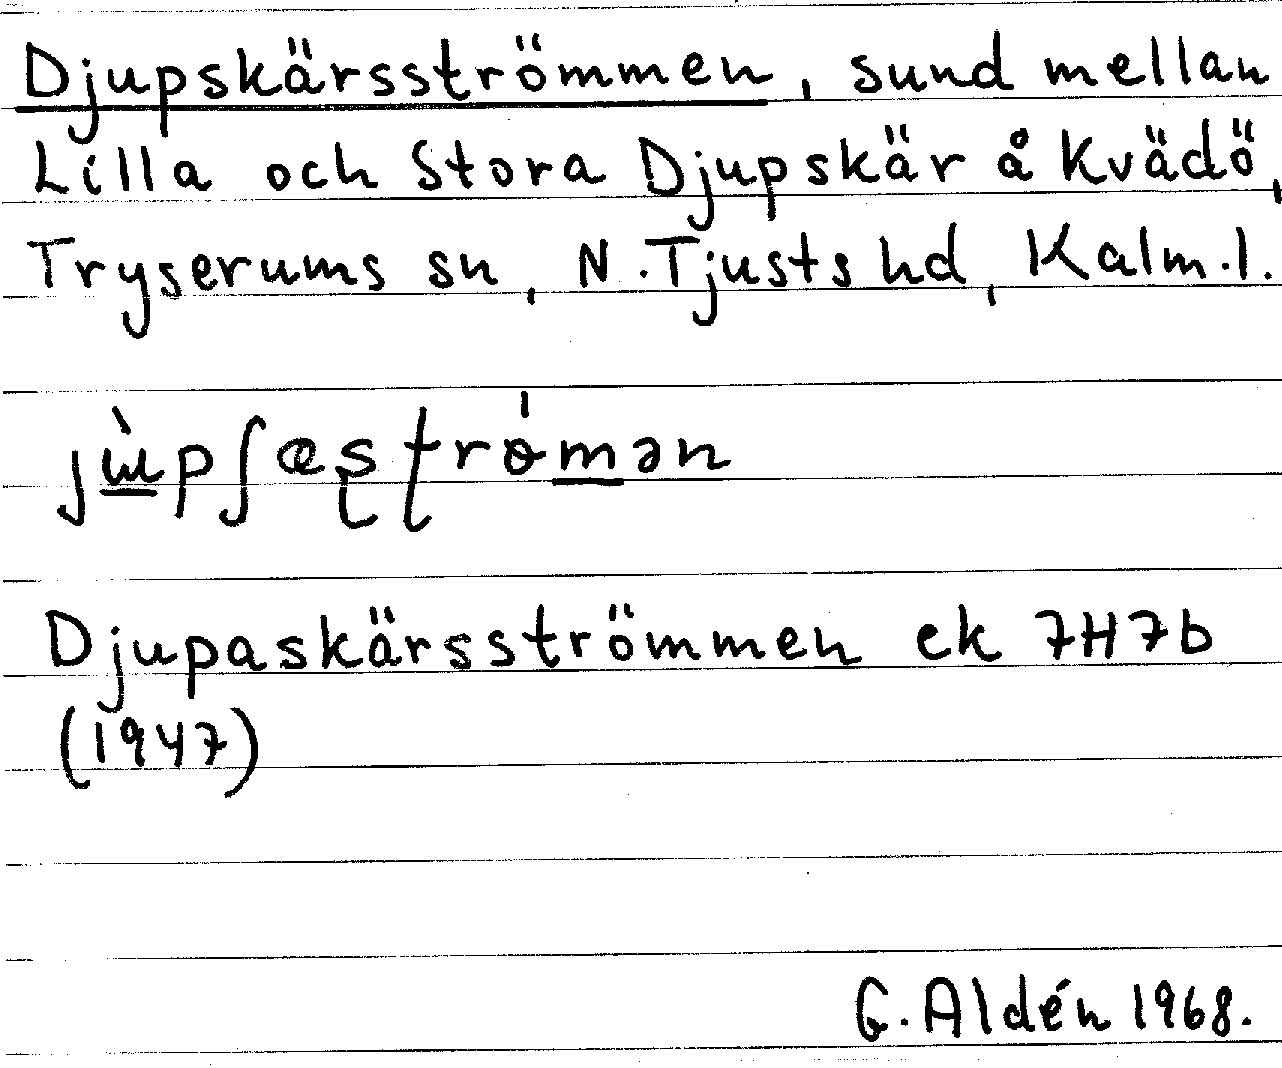 Djupskärsströmmen, sund mellan
Lilla och Stora Djupskär å Kvädö,
Tryserums sn, N. Tjusts hd, Kalm. l.
jɯ̀pʃæʂʈrɵ́mən
Djupaskärsströmmen ek 7H7b
(1947)
G. Aldén 1968.